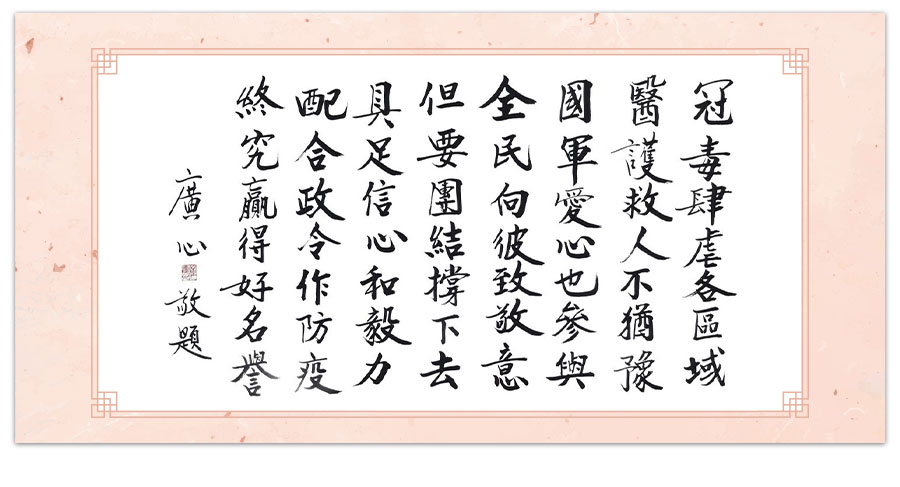 冠毒肆虐各區域
醫護救人不猶豫
國軍愛心也參與
全民向彼致敬意
但要團結撐下去
具足信心和毅力
配合政令作防疫
終究贏得好名譽
廣心敬題